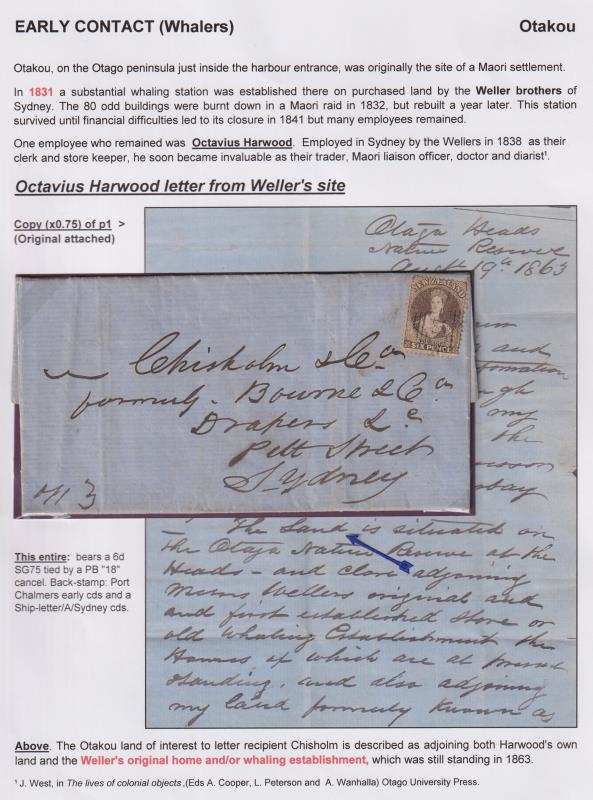 EARLY CONTACT (Whalers) Otakou
Otakou, on the Otago peninsula just inside the harbour entrance, was originally the site of a Maori settlement.
In 1831 a substantial whaling station was established there on purchased land by the Weller brothers of
Sydney. The 80 odd buildings were burnt down in a Maori raid in 1832, but rebuilt a year later. This station
survived until financial difficulties led to its closure in 1841 but many employees remained.
One employee who remained was Octavius Harwood. Employed in Sydney by the Wellers in 1838 as their
clerk and store keeper, he soon became invaluable as their trader, Maori liaison officer, doctor and diarist¹.
Octavius Harwood letter from Weller's site
Copy (x0.75) of p1 >
(Original attached)
Otago Heads
Native Reserve
Augt 19th 1863
and
my
the
NEW ZEALAND
SIX PENCE
Chisholm & Co
formerly Bourne & Co
Drapers &c
Pitt Street
Sydney
The Land is situated on
the Otago Native Reserve at the
Heads - and close adjoining
Messrs Wellers original and
and first established Store or
old Whaling Establishment the
Houses of which are at present
standing, and also adjoining
my land formerly known as
This entire: bears a 6d
SG75 tied by a PB "18"
cancel. Back-stamp: Port
Chalmers early cds and a
Ship-letter/A/Sydney cds.
Above. The Otakou land of interest to letter recipient Chisholm is described as adjoining both Harwood's own
land and the Weller's original home and/or whaling establishment, which was still standing in 1863.
¹ J. West, in The lives of colonial objects ,(Eds A. Cooper, L. Peterson and A. Wanhalla) Otago University Press.